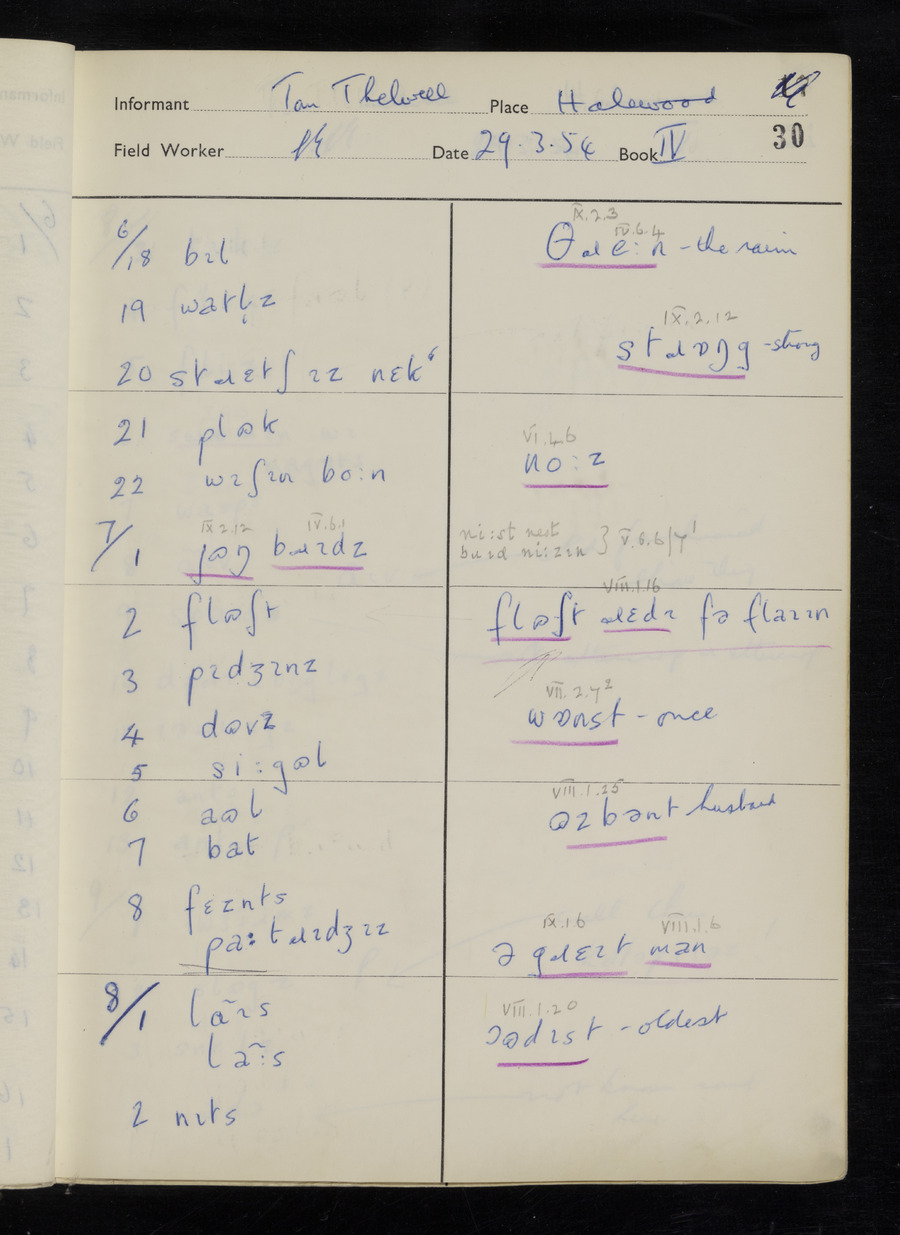 Informant Tom Thelwell Place Halewood
30
Field Worker Date 29.3.54 Book IV
6/18 bɪl
19 watl̩z
20 stɹɛtʃɪz nɛk⁶
21 plʊk
22 wɪʃɪn bo:n
7/1 jʊŋ bəɹdz
IX.2.12 IV.6.1
2 flʊʃt
3 pɪdʒɪnz
4 dʊvz
5 si:gʊl
6 aʊl
7 bat
8 fɛznts
pa:tɹɪdʒɪz
8/1 lãɪs
lã:s
2 nɪts
IX.2.3
IV.6.4
θɹe:n - the rain
IX.2.12
stɹɒŋg - strong
VI.4.6
no:z
ni:st nest
bəɹd ni:zɪn } V.6.6/7¹
VIII.1.16
flʊʃt ɹɛdɪ fə flaɪɪn
VII.2.7²
wɒnst - once
VIII.1.25
ʊzbənt husband
IX.1.6 VIII.1.6
ə gɹɛɪt man
VIII.1.20
ɔʊdɪst - oldest